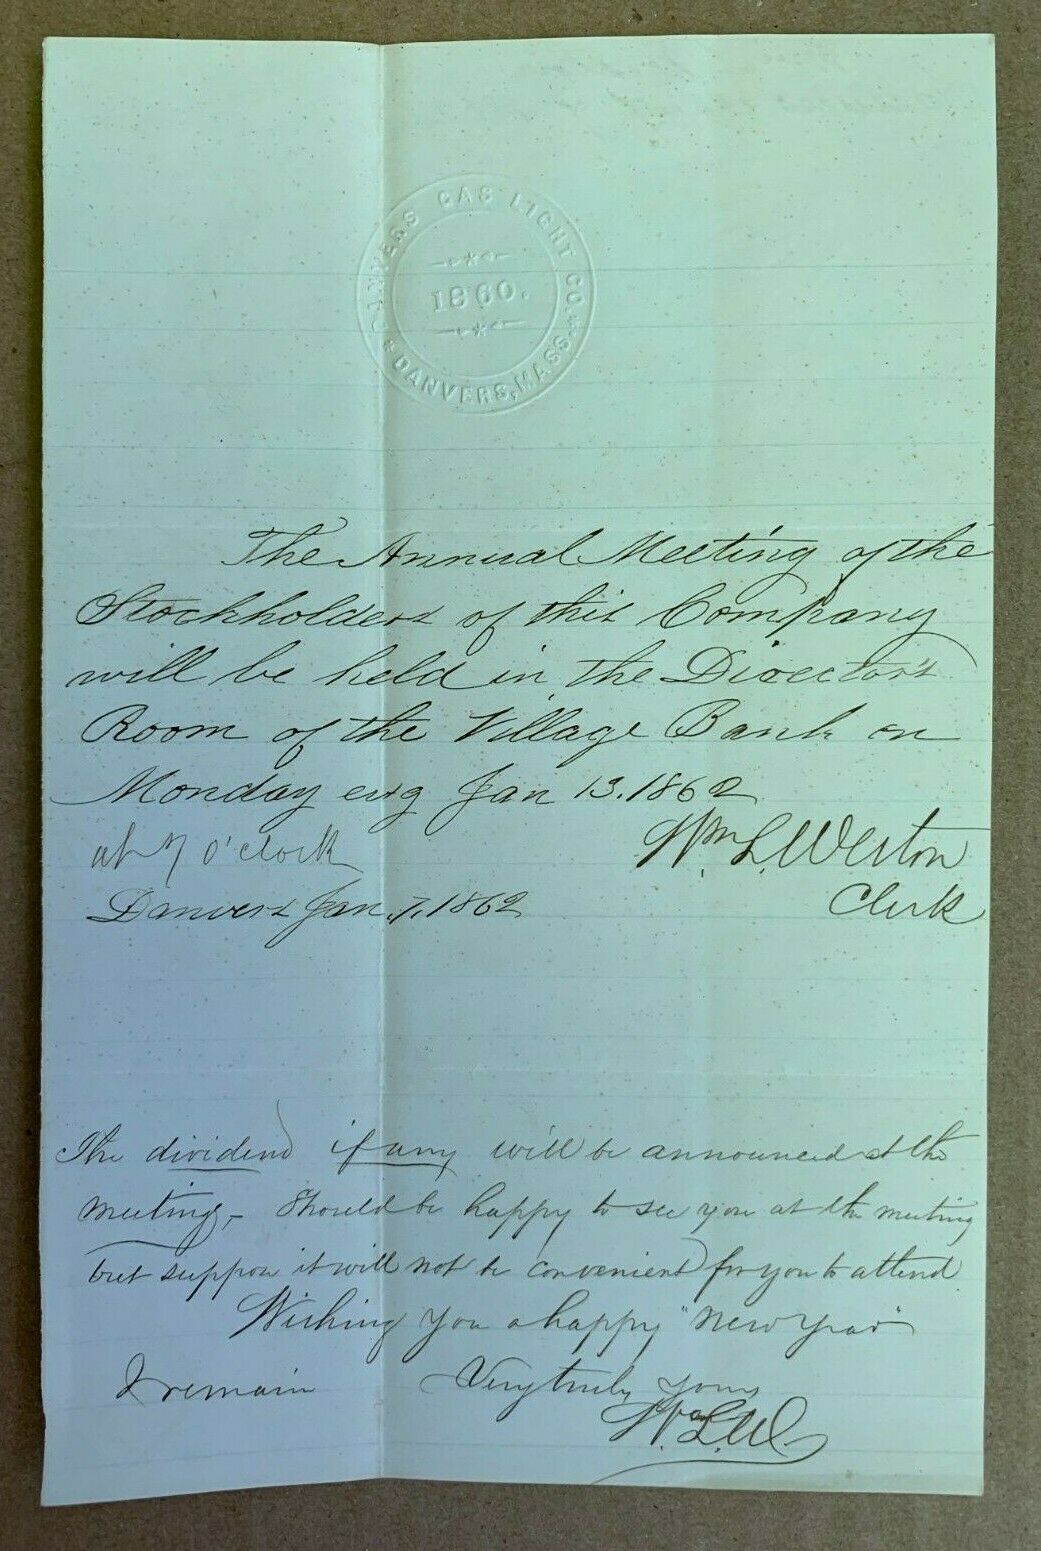 DANVERS GAS LIGHT CO.
1860.
DANVERS, MASS.
The Annual Meeting of the
Stockholders of this Company
will be held in the Director's
Room of the Village Bank on
Monday evg Jan 13. 1862
at 7 o'clock
Wm L. Weston
Danvers Jan. 7, 1862
Clerk
The dividend if any will be announced at the
meeting,- Should be happy to see you at the meeting
but suppose it will not be convenient for you to attend
Wishing you a happy "New Year"
I remain Very truly yours
Wm L. W.